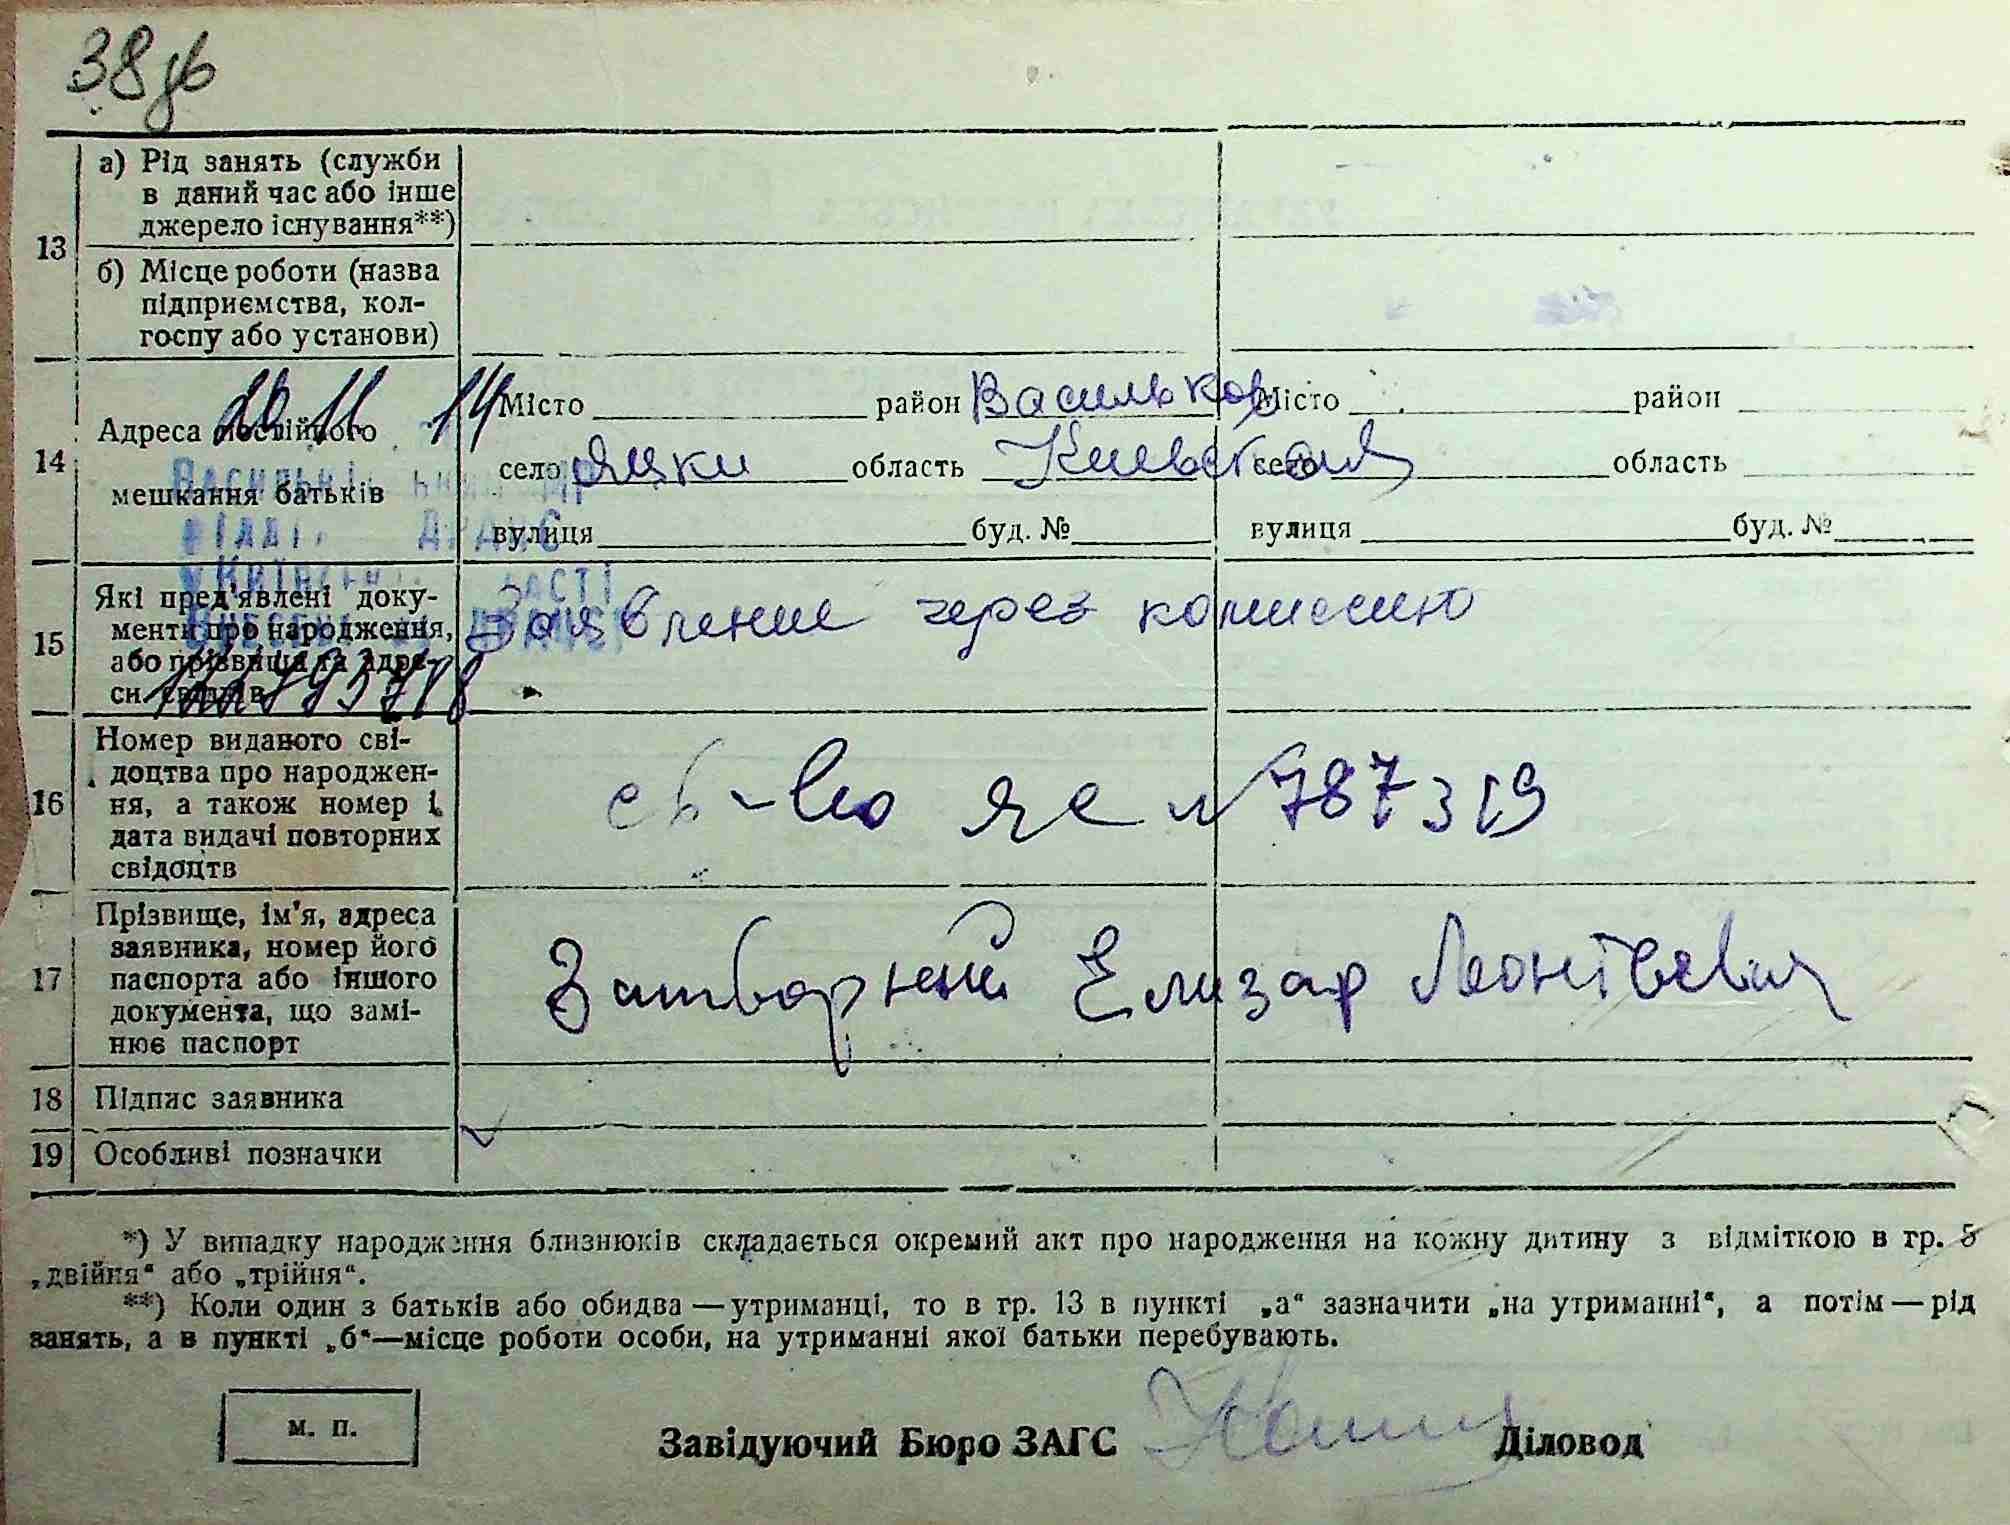 38зв
13
а) Рід занять (служби
в даний час або інше
джерело існування**)
б) Місце роботи (назва
підприємства, кол-
госпу або установи)
14
Адреса постійного
мешкання батьків
20 11 14
Місто район Васильков
село Яцки область Киевская
вулиця буд. №
Місто район
село область
вулиця буд. №
15
Які пред'явлені доку-
менти про народження,
або прізвища та адре-
си свідків
Заявление через комиссию
16
Номер виданого сві-
доцтва про народжен-
ня, а також номер і
дата видачі повторних
свідоцтв
св-во ЯЕ № 787319
17
Прізвище, ім'я, адреса
заявника, номер його
паспорта або іншого
документа, що замі-
нює паспорт
Затворний Елизар Леонтієвич
18 Підпис заявника
19 Особливі позначки
*) У випадку народження близнюків складається окремий акт про народження на кожну дитину з відміткою в гр. 5
„двійня“ або „трійня“.
**) Коли один з батьків або обидва — утриманці, то в гр. 13 в пункті „а“ зазначити „на утриманні“, а потім — рід
занять, а в пункті „б“—місце роботи особи, на утриманні якої батьки перебувають.
м. п.
Завідуючий Бюро ЗАГС
Діловод